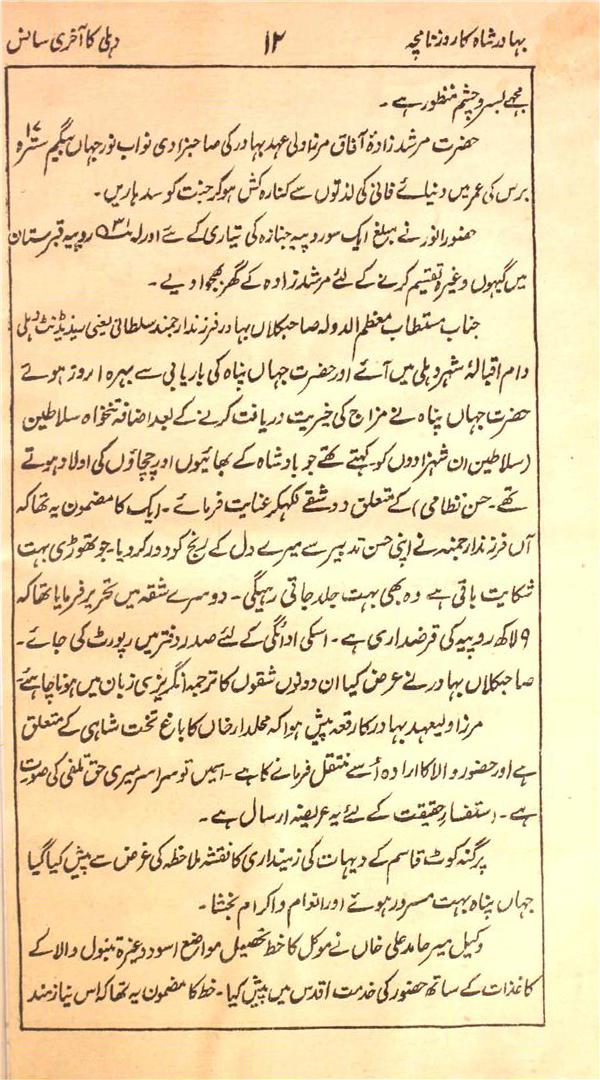 بہادر شاہ کا روزنامچہ ۱۲ دہلی کا آخری سانس
مجھے بسر و چشم منظور ہے۔
حضرت مرشد زادۂ آفاق مرزا ولی عہد بہادر کی صاحبزادی نواب نور جہاں بیگم سترہ ۱۷
برس کی عمر میں دنیائے فانی کی لذتوں سے کنارہ کش ہو کر جنت کو سدہاریں۔
حضور انور نے مبلغ ایک سو روپیہ جنازہ کی تیاری کے لئے اور روپیہ قبرستان
میں گیہوں وغیرہ تقسیم کرنے کے لئے مرشد زادہ کے گھر بھجوا دیے۔
جناب مستطاب معظم الدولہ صاحبکلاں بہادر فرزند ارجمند سلطانی یعنی ریذیڈنٹ دہلی
دام اقبالہٗ شہر دہلی میں آئے اور حضرت جہاں پناہ کی باریابی سے بہرہ اروز ہوئے
حضرت جہاں پناہ نے مزاج کی خیریت دریافت کرنے کے بعد اضافۂ تنخواہ سلاطین
(سلاطین ان شہزادوں کو کہتے تھے جو بادشاہ کے بھائیوں اور چچاؤں کی اولاد ہوتے
تھے۔ حسن نظامی) کے متعلق دو شقے لکھکر عنایت فرمائے۔ ایک کا مضمون یہ تھا کہ
آں فرزند ارجمند نے اپنی حسن تدبیر سے میرے دل کے رنج کو دور کر دیا۔ جو تھوڑی بہت
شکایت باقی ہے وہ بھی بہت جلد جاتی رہیگی۔ دوسرے شقہ میں تحریر فرمایا تھا کہ
۹ لاکھ روپیہ کی قرضداری ہے۔ اسکی ادائگی کے لئے صدر دفتر میں رپورٹ کی جائے۔
صاحبکلاں بہادر نے عرض کیا ان دونوں شقوں کا ترجمہ انگریزی زبان میں ہونا چاہئے۔
مرزا ولیعہد بہادر کا رقعہ پیش ہوا کہ محلدار خاں کا باغ تخت شاہی کے متعلق
ہے اور حضور والا کا ارادہ اُسے منتقل فرمانے کا ہے۔ اسمیں تو سراسر میری حق تلفی کی صورت
ہے۔ استفسار حقیقت کے لئے یہ عریضہ ارسال ہے۔
پرگنہ کوٹ قاسم کے دیہات کی زمینداری کا نقشہ ملاحظہ کی غرض سے پیش کیا گیا
جہاں پناہ بہت مسرور ہوئے اور انعام و اکرام بخشا۔
وکیل میر حامد علی خاں نے موکل کا خط تحصیل مواضع اسود وغیرہ والا کے
کاغذات کے ساتھ حضور کی خدمت اقدس میں پیش کیا۔ خط کا مضمون یہ تھا کہ اس نیازمند